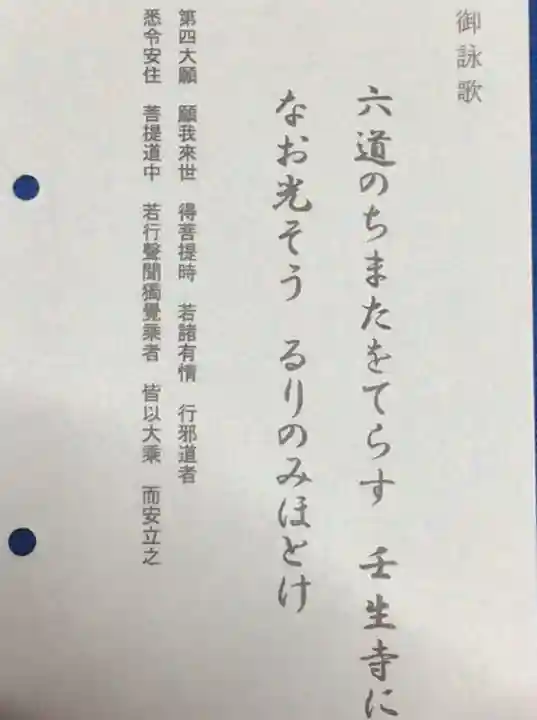 御詠歌
六道のちまたをてらす 壬生寺に
なお光そう るりのみほとけ
第四大願 願我來世 得菩提時 若諸有情 行邪道者
悉令安住 菩提道中 若行聲聞獨覺乘者 皆以大乘 而安立之